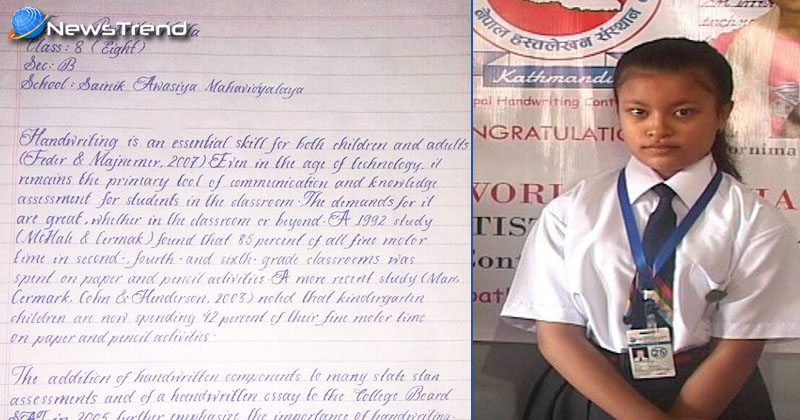 NEWSTREND
Class: 8 (Eight)
Sec: B
School: Sainik Awasiya Mahavidyalaya
Handwriting is an essential skill for both children and adults
(Feder & Majnemer, 2007) Even in the age of technology, it
remains the primary tool of communication and knowledge
assessment for students in the classroom. The demands for it
are great, whether in the classroom or beyond. A 1992 study
(McHale & Cermak) found that 85 percent of all fine motor
time in second-, fourth- and sixth-grade classrooms was
spent on paper and pencil activities. A more recent study (Marr,
Cermark, Cohn & Henderson, 2003) noted that kindergarten
children are now spending 42 percent of their fine motor time
on paper and pencil activities.
The addition of handwritten components to many state stan
assessments and of a handwritten essay to the College Board
SAT in 2005 further emphasize the importance of handwriting.
नेपाल हस्तलेखन संस्थान
Kathmandu
pal Handwriting Cont
ONGRATULATIO
ornima
WORL